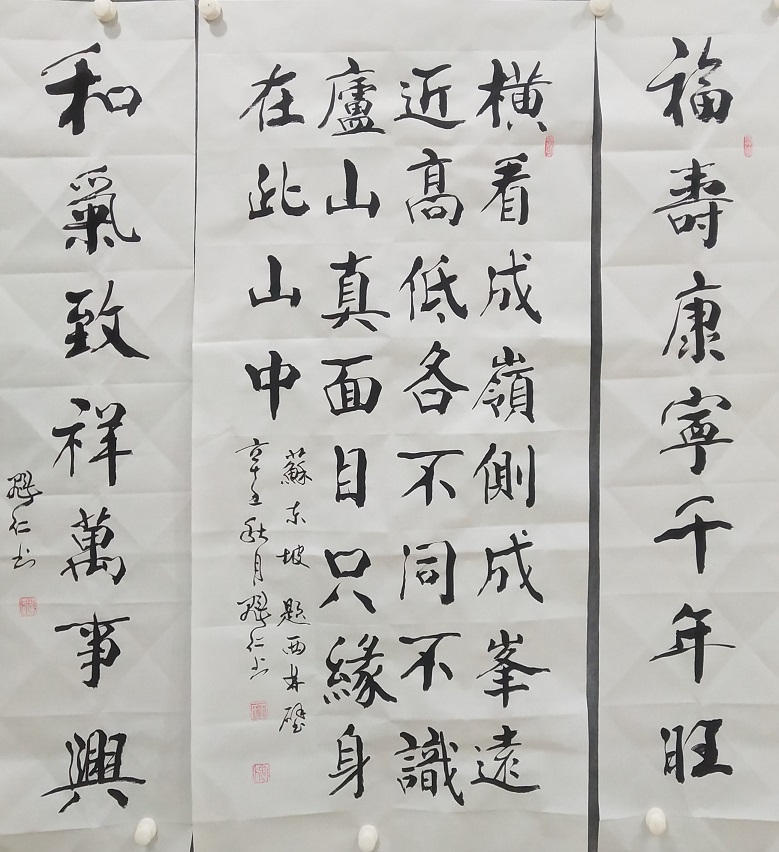 福壽康寧千年旺
橫看成嶺側成峯遠
近高低各不同不識
廬山真面目只緣身
在此山中
蘇東坡題西林壁
秋月
仁书
和氣致祥萬事興
仁书